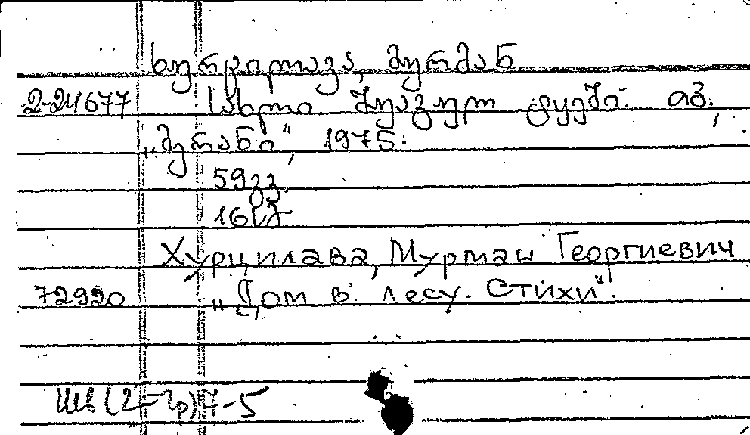 ხურცილავა, მურმან
2-24677 სახლი შუაგულ ტყეში. თბ.,
„მერანი“, 1975.
59გვ.
16სმ
Хурцилава, Мурман Георгиевич
72920 „Дом в лесу. Стихи“.